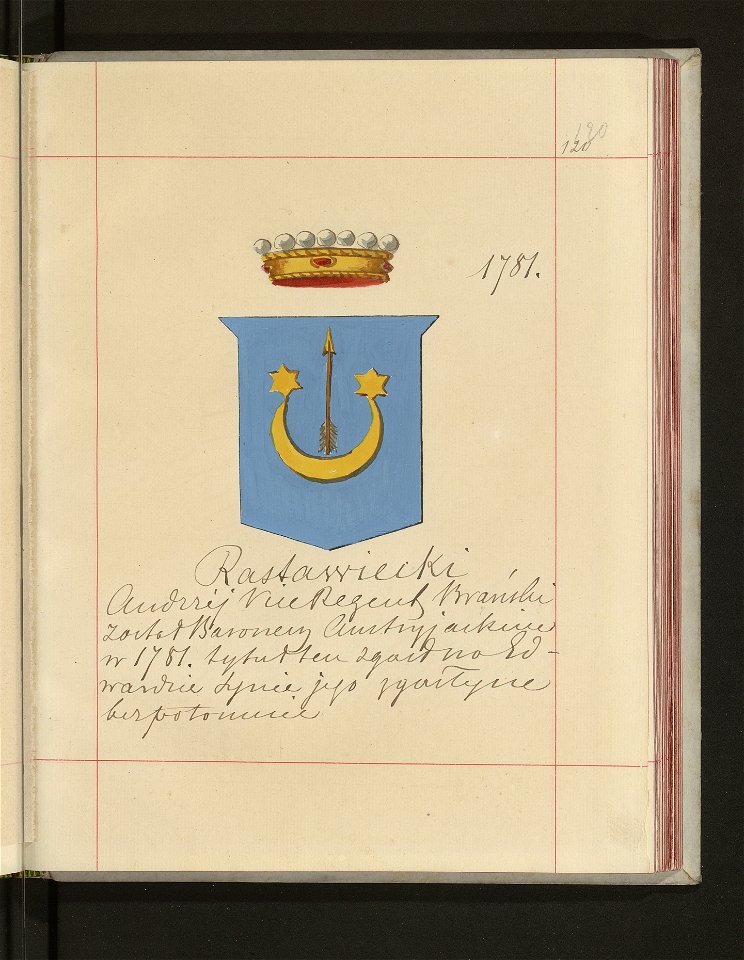 120
120
1781.
Rastawiecki
Andrzéj Vice Regent Brański
został Baronem Austryjackim
w 1781. tytuł ten zgasł na Ed-
wardzie synie jego zgasłym
bezpotomnie